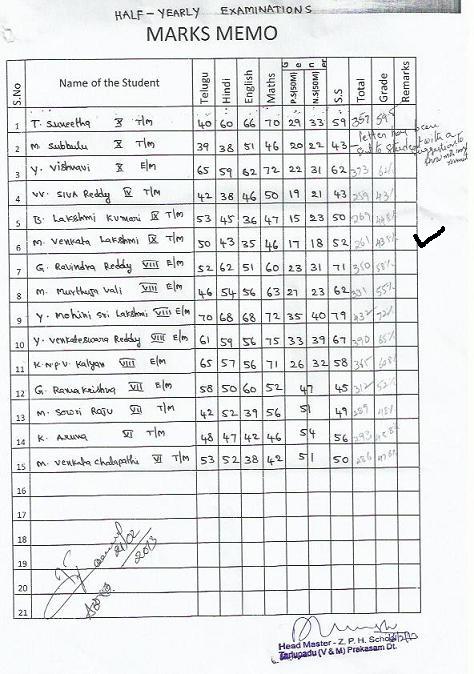 HALF-YEARLY EXAMINATIONS
MARKS MEMO
S.No Name of the Student Telugu Hindi English Maths P.S(50M) N.S(50M) S.S Total Grade Remarks
1 T. Suneetha X T/M 40 60 66 70 29 33 59 357
2 M Subbulu X T/M 39 38 51 46 20 22 43
3 Y. Vishnavi X E/M 65 59 62 72 22 31 62 373
4 VV. SIVA Reddy IX T/M 42 38 46 50 19 21 43 259
5 B. Lakshmi Kumari IX T/M 53 45 36 47 15 23 50 269
6 M. Venkata Lakshmi IX T/M 50 43 35 46 17 18 52 261
7 G. Ravindra Reddy VIII E/M 52 62 51 60 23 31 71 350
8 M. Murthuja Vali VIII E/M 46 54 56 63 27 23 62
9 Y. Mohini Sri Lakshmi VIII E/M 70 68 68 72 35 40 79 432
10 Y. Venkateswara Reddy VIII E/M 61 59 56 75 33 39 67 390
11 K.N.P.V. Kalyan VIII E/M 65 57 56 71 26 32 58 365
12 G. Rama Krishna VII E/M 58 50 60 52 47 45 312
13 M. Sowri Raju VII T/M 42 52 39 56 51 49 289
14 K. Aruna VI T/M 48 47 42 46 54 56 293
15 M. Venkata Chalapathi VI T/M 53 52 38 42 51 50 286
16
17
18
19
20
21
Head Master - Z. P. H. School
Tarlupadu (V & M) Prakasam Dt.